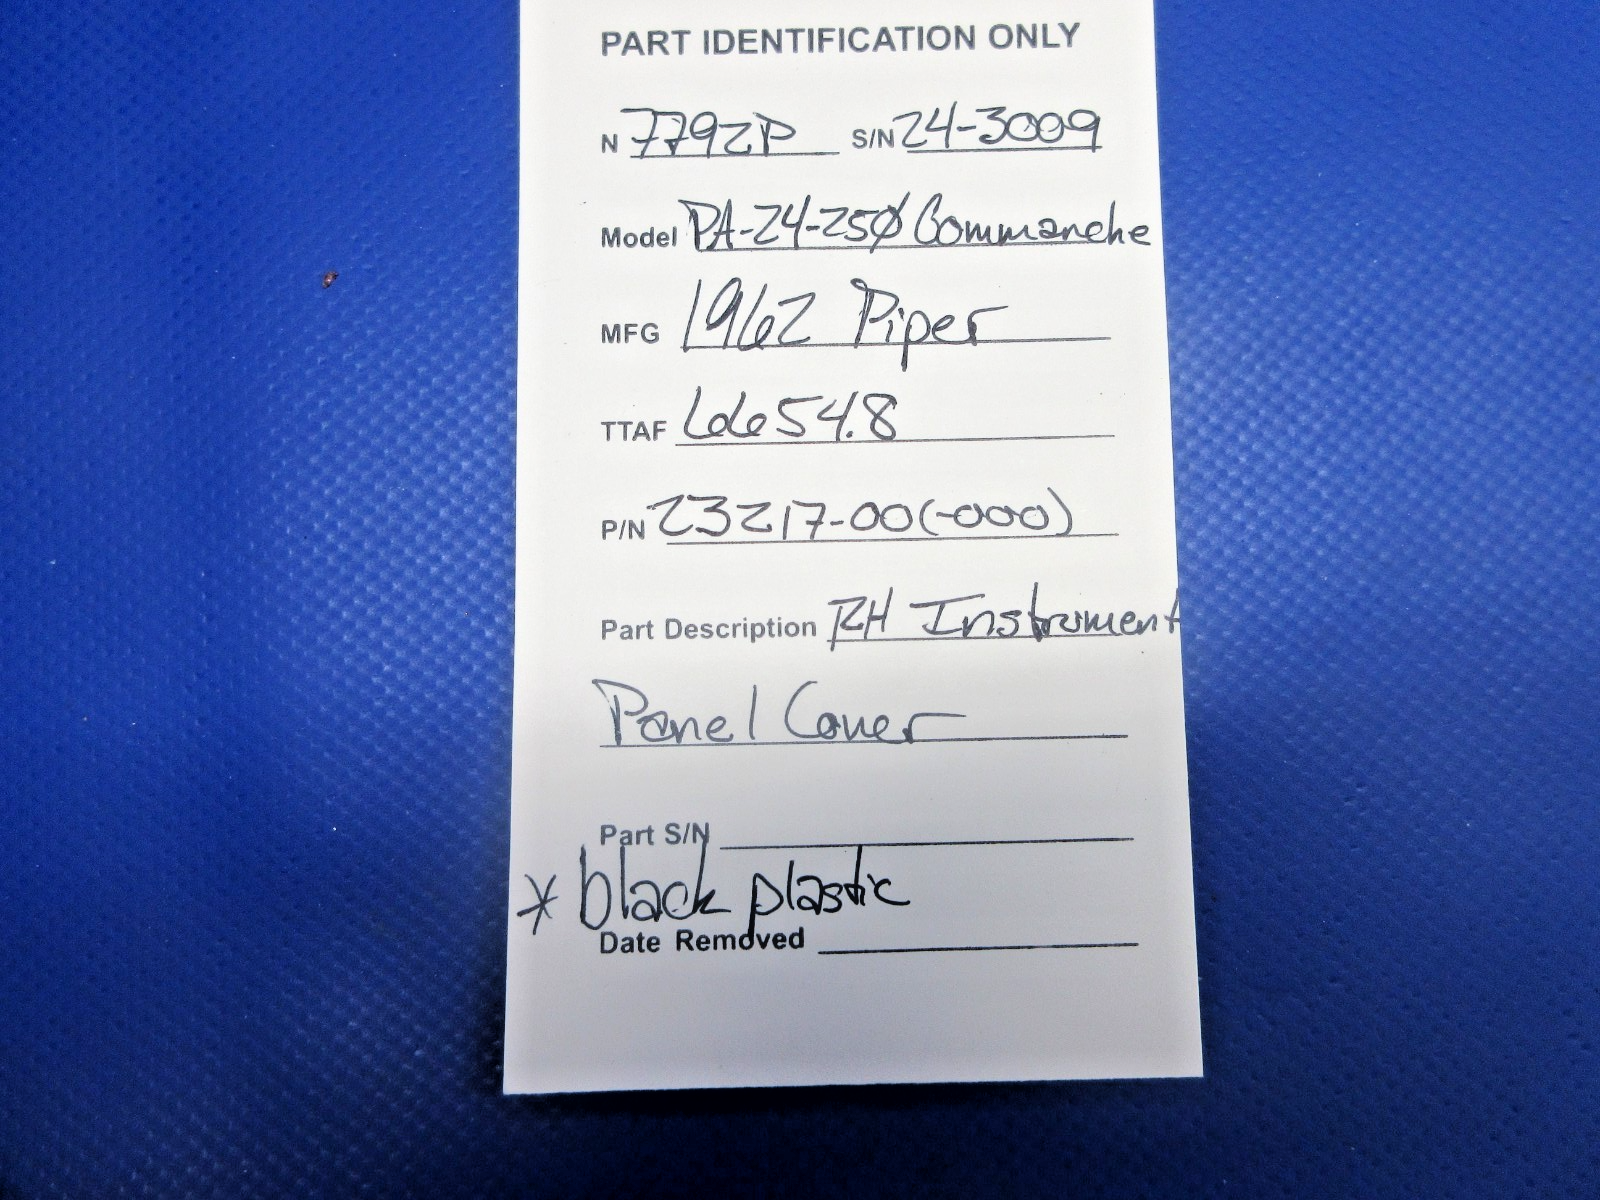 PART IDENTIFICATION ONLY
N 7792P S/N 24-3009
Model PA-24-250 Commanche
MFG 1962 Piper
TTAF 6654.8
P/N 23217-00(-000)
Part Description RH Instrument
Panel Cover
Part S/N
* black plastic
Date Removed